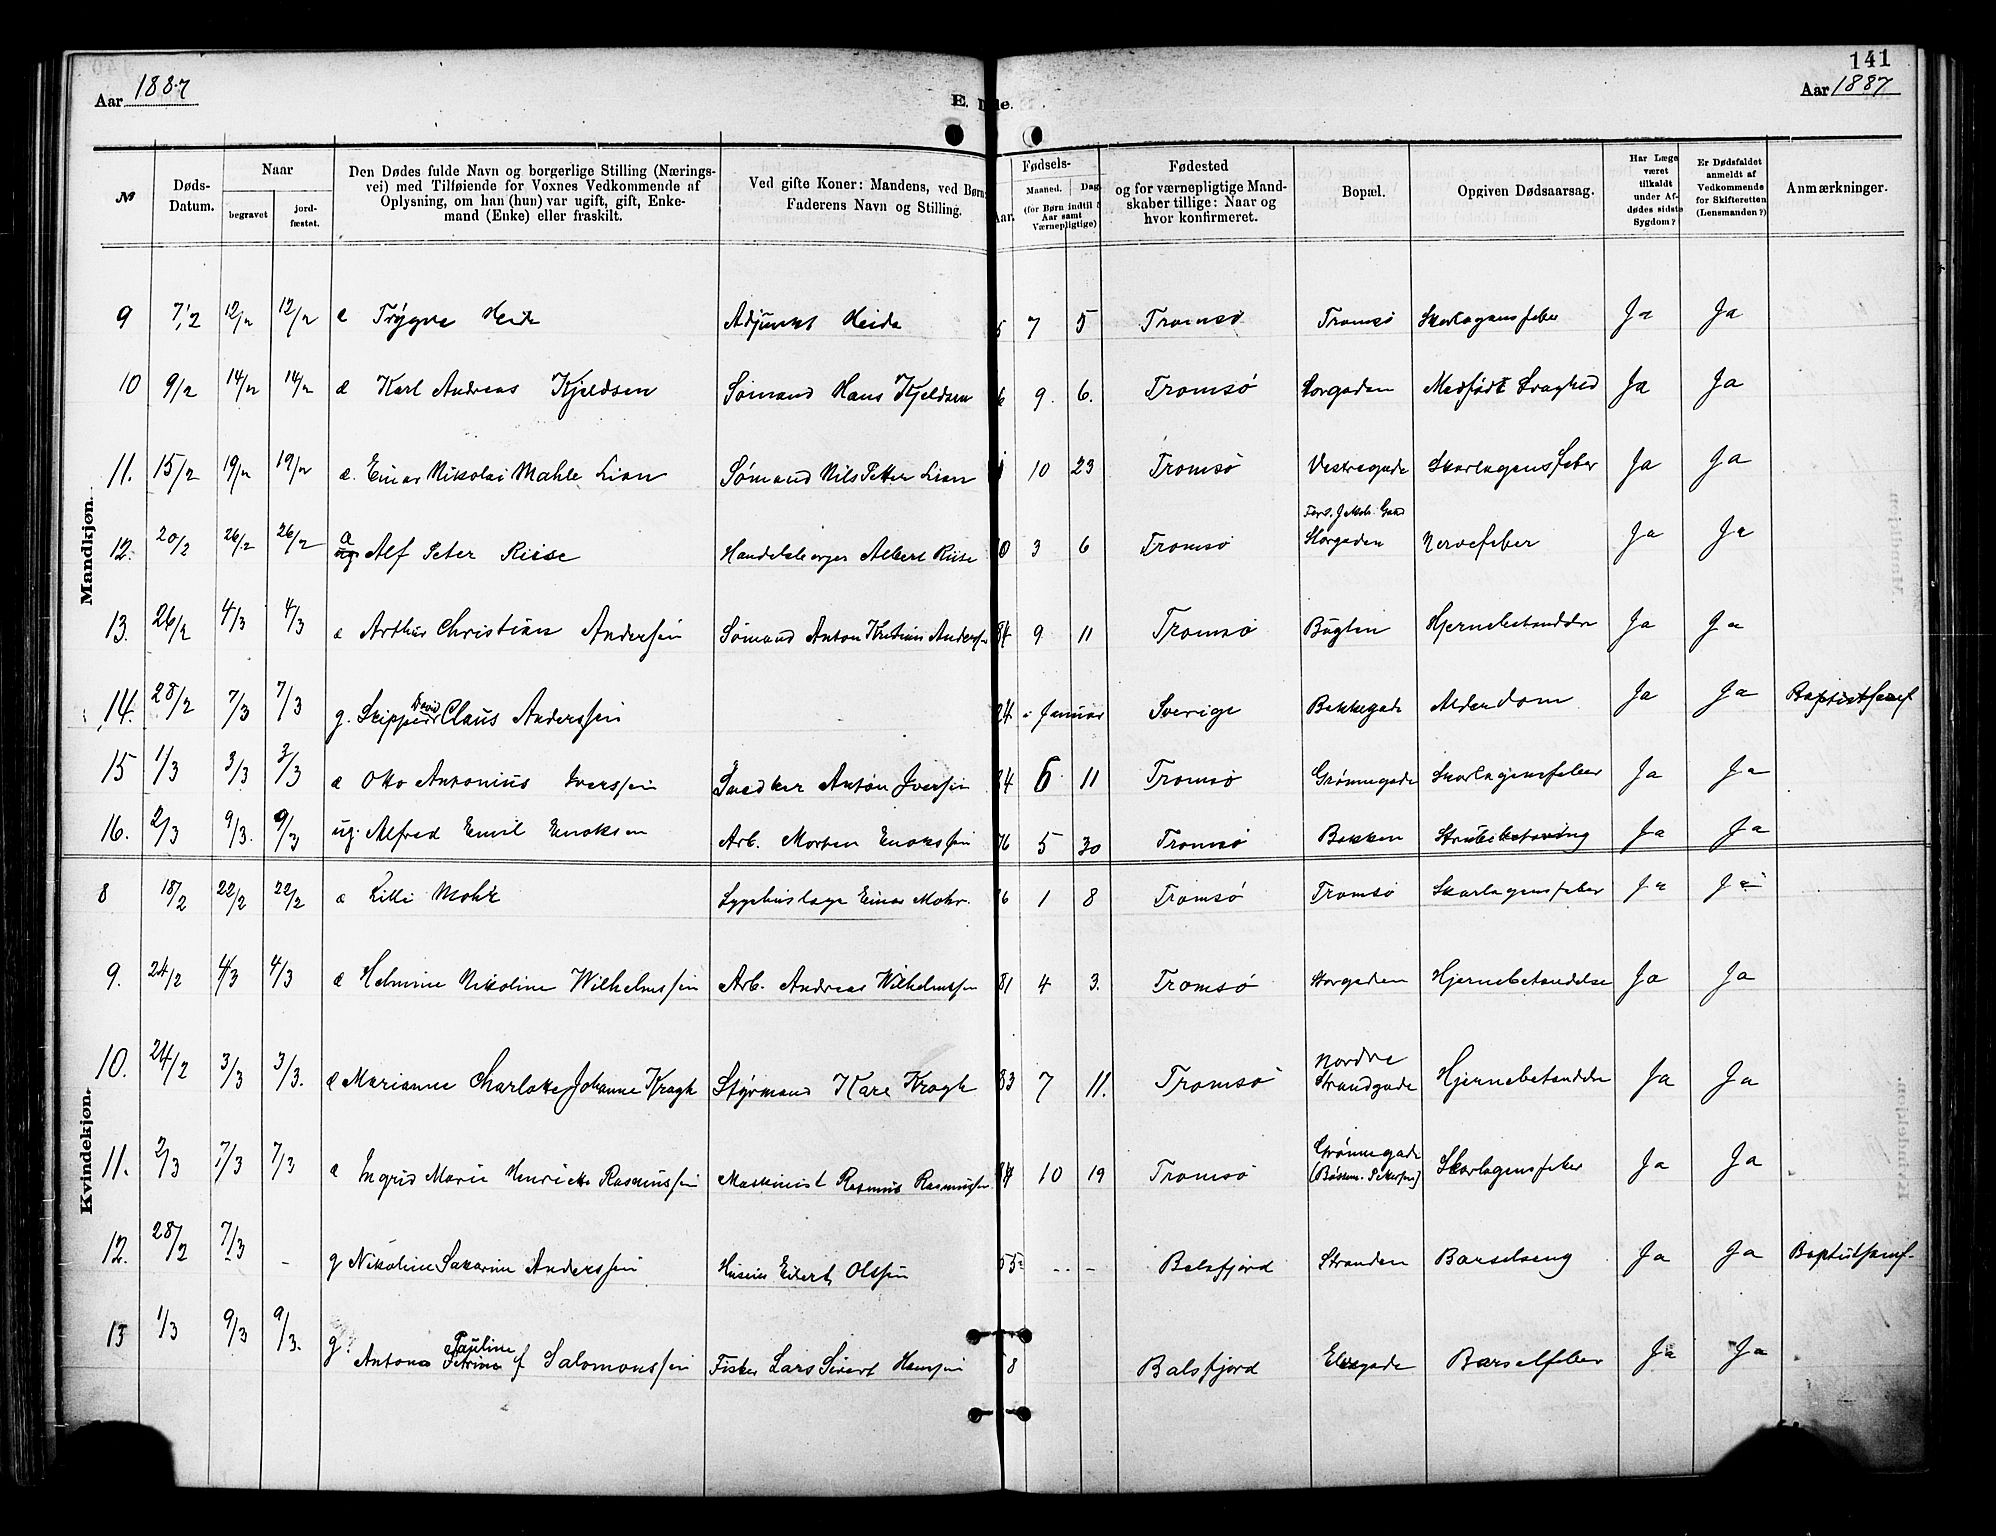 141
Aar 1887
E. D de.
Aar 1887
№
Døds-Datum.
Naar
begravet
jord-fæstet.
Den Dødes fulde Navn og borgerlige Stilling (Nærings-
vei) med Tilføiende for Voxnes Vedkommende af
Oplysning, om han (hun) var ugift, gift, Enke-
mand (Enke) eller fraskilt.
Ved gifte Koner: Mandens, ved Børn:
Faderens Navn og Stilling.
Fødsels-
Aar.
Maaned.
Dag.
(for Børn indtil 5
Aar samt
Værnepligtige)
Fødested
og for værnepligtige Mand-
skaber tillige: Naar og
hvor konfirmeret.
Bopæl.
Opgiven Dødsaarsag.
Har Læge
været
tilkaldt
under Af-
dødes sidste
Sygdom?
Er Dødsfaldet
anmeldt af
Vedkommende
for Skifteretten
(Lensmanden?)
Anmærkninger.
Mandkjøn.
9 7/2 12/2 12/2 e Trygve Heide Adjunkt Heide 5 7 5 Tromsø Tromsø Skarlagensfeber Ja Ja
10 9/2 14/2 14/2 æ Karl Andreas Kjeldsen Sømand Hans Kjeldsen 6 9. 6. Tromsø Storgaden Medfødt Svaghed Ja Ja
11. 15/2 19/2 19/2 æ. Einar Nikolai Mahle Lian Sømand Nils Petter Lian 10 23 Tromsø Vestregade Skarlagensfeber Ja Ja
12. 20/2 26/2 26/2 Alf Peter Riise Handelsborger Albert Riise 0 3 6 Tromsø Storgaden Nervefeber Ja Ja
13. 26/2 4/3 4/3 æ Arthur Christian Andersen Sømand Anton Andersen 84 9 11 Tromsø Hjernebetændelse Ja Ja
14. 28/2 7/3 7/3 g. Skipper David Claus Anderssen 24 i Januar Sverige Bakkegade Alderdom Ja Ja Baptistsamf
15 1/3 3/3 3/3 æ Otto Antonius Iverssen Snedker Anton Iversen 84 6 11 Tromsø Grønnegade Skarlagensfeber Ja Ja
16. 2/3 9/3. 9/3 ug. Alfred Emil Enoksen Arb. Morten Enokssen 76 5 30 Tromsø Bakken Ja Ja
Kvindekjøn.
8 18/2 22/2 22/2 æ Lilli Mohr Sygehuslæge Einar Mohr. 6 1 8 Tromsø Tromsø Skarlagensfeber Ja Ja
9. 24/2 4/3 4/3 æ Helmine Nikoline Wilhelmssen Arb. Andreas Wilhelmssen 81 4 3. Tromsø Storgaden Hjernebetændelse Ja Ja
10. 24/2 3/3 3/3. æ Marianne Charlotte Johanne Kragh Styrmand Kragh 83 7 11. Tromsø Nordre Strandgade Hjernebetændelse Ja Ja
11. 2/3 7/3 7/3 æ Ingrid Marie Henriette Rasmussen Maskinist Rasmus Rasmussen 84 10 19 Tromsø Grønnegade Skarlagensfeber Ja Ja
12. 28/2 7/3 - g Nikoline Sakarine Anderssen Eilert Olssen 55 - - Balsfjord Stranden Barselseng Ja Ja Baptistsamf.
13 1/3 9/3 9/3. g. Antona Pauline Petrine f Salomonssen Fisker Lars Sivert Hanssen 8 Balsfjord Elvegade Barselfeber Ja Ja